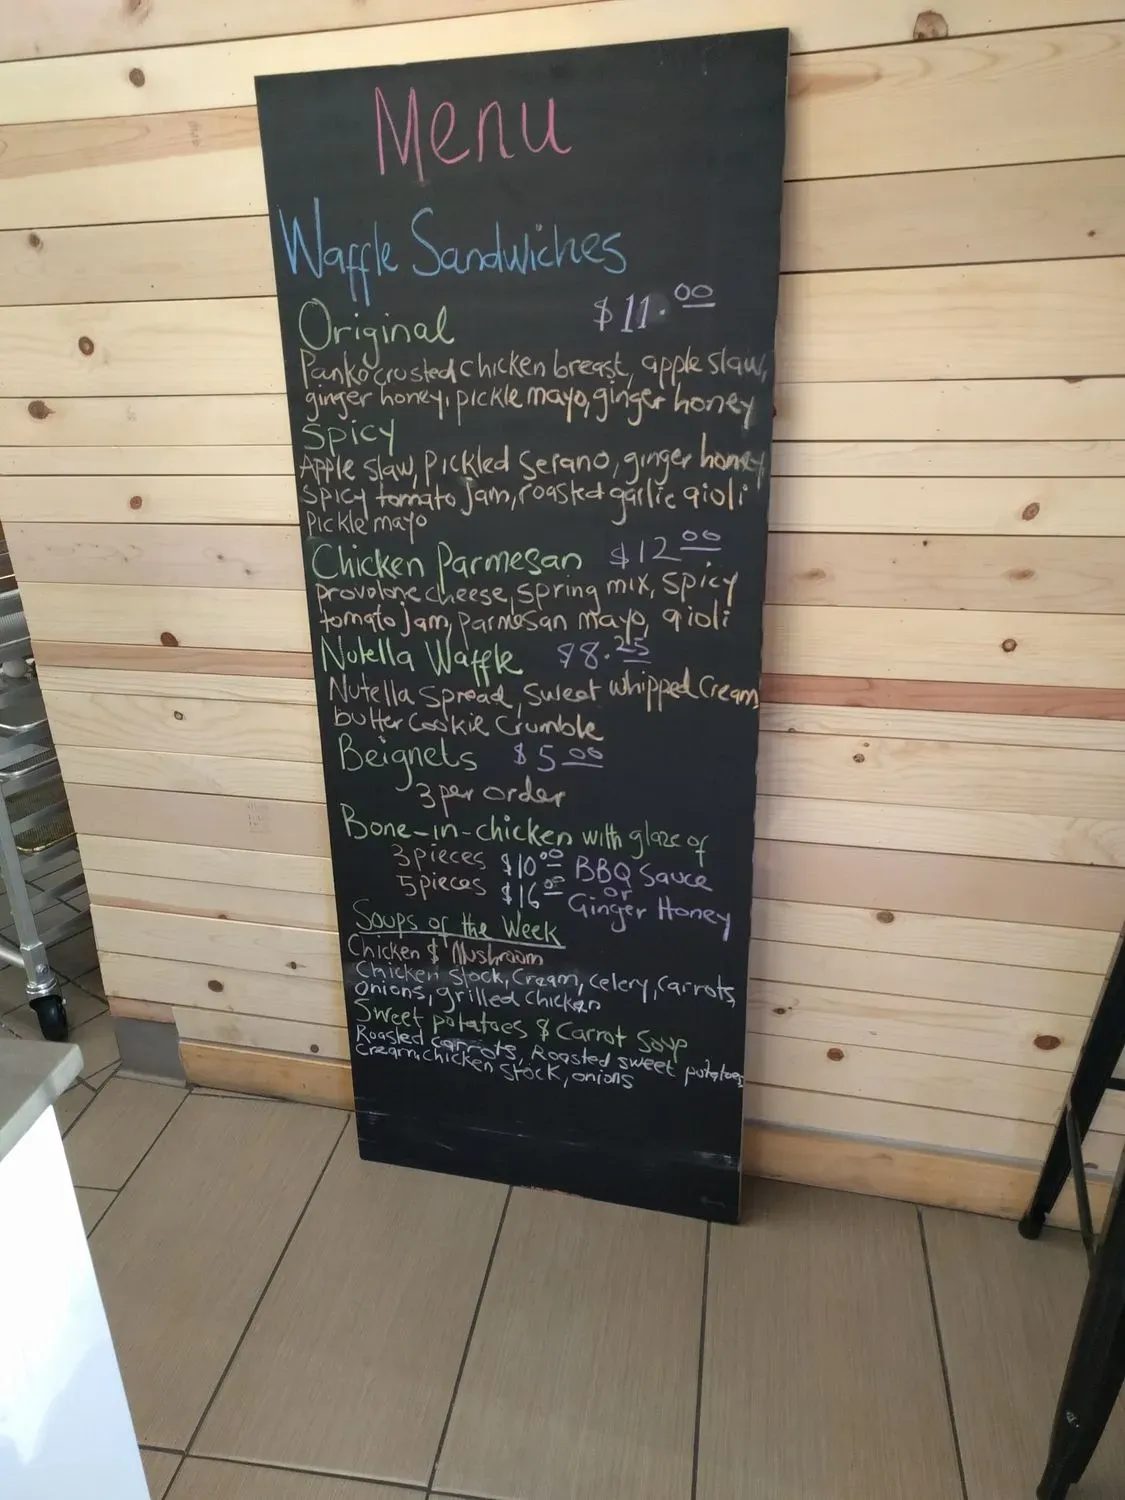 Menu
Waffle Sandwiches
Original $11.00
Panko crusted chicken breast, apple slaw,
ginger honey, pickle mayo, ginger honey
Spicy
Apple slaw, pickled serano, ginger honey,
spicy tomato jam, roasted garlic aioli
pickle mayo
Chicken Parmesan $12.00
provolone cheese, spring mix, spicy
tomato jam, parmesan mayo, aioli
Nutella Waffle $8.25
Nutella spread, sweet whipped cream,
butter cookie crumble
Beignets $5.00
3 per order
Bone-in-chicken with glaze of
3 pieces $10.00 BBQ Sauce
or
5 pieces $16.00 Ginger Honey
Soups of the Week
Chicken & Mushroom
Chicken stock, cream, celery, carrots,
onions, grilled chicken
Sweet potatoes & Carrot Soup
Roasted carrots, Roasted sweet potatoes
cream, chicken stock, onions